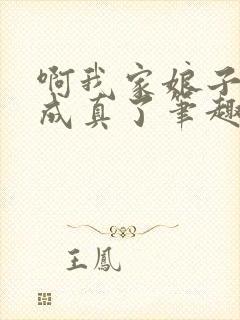 啊我家娘子
成真了笔趣
王鳳